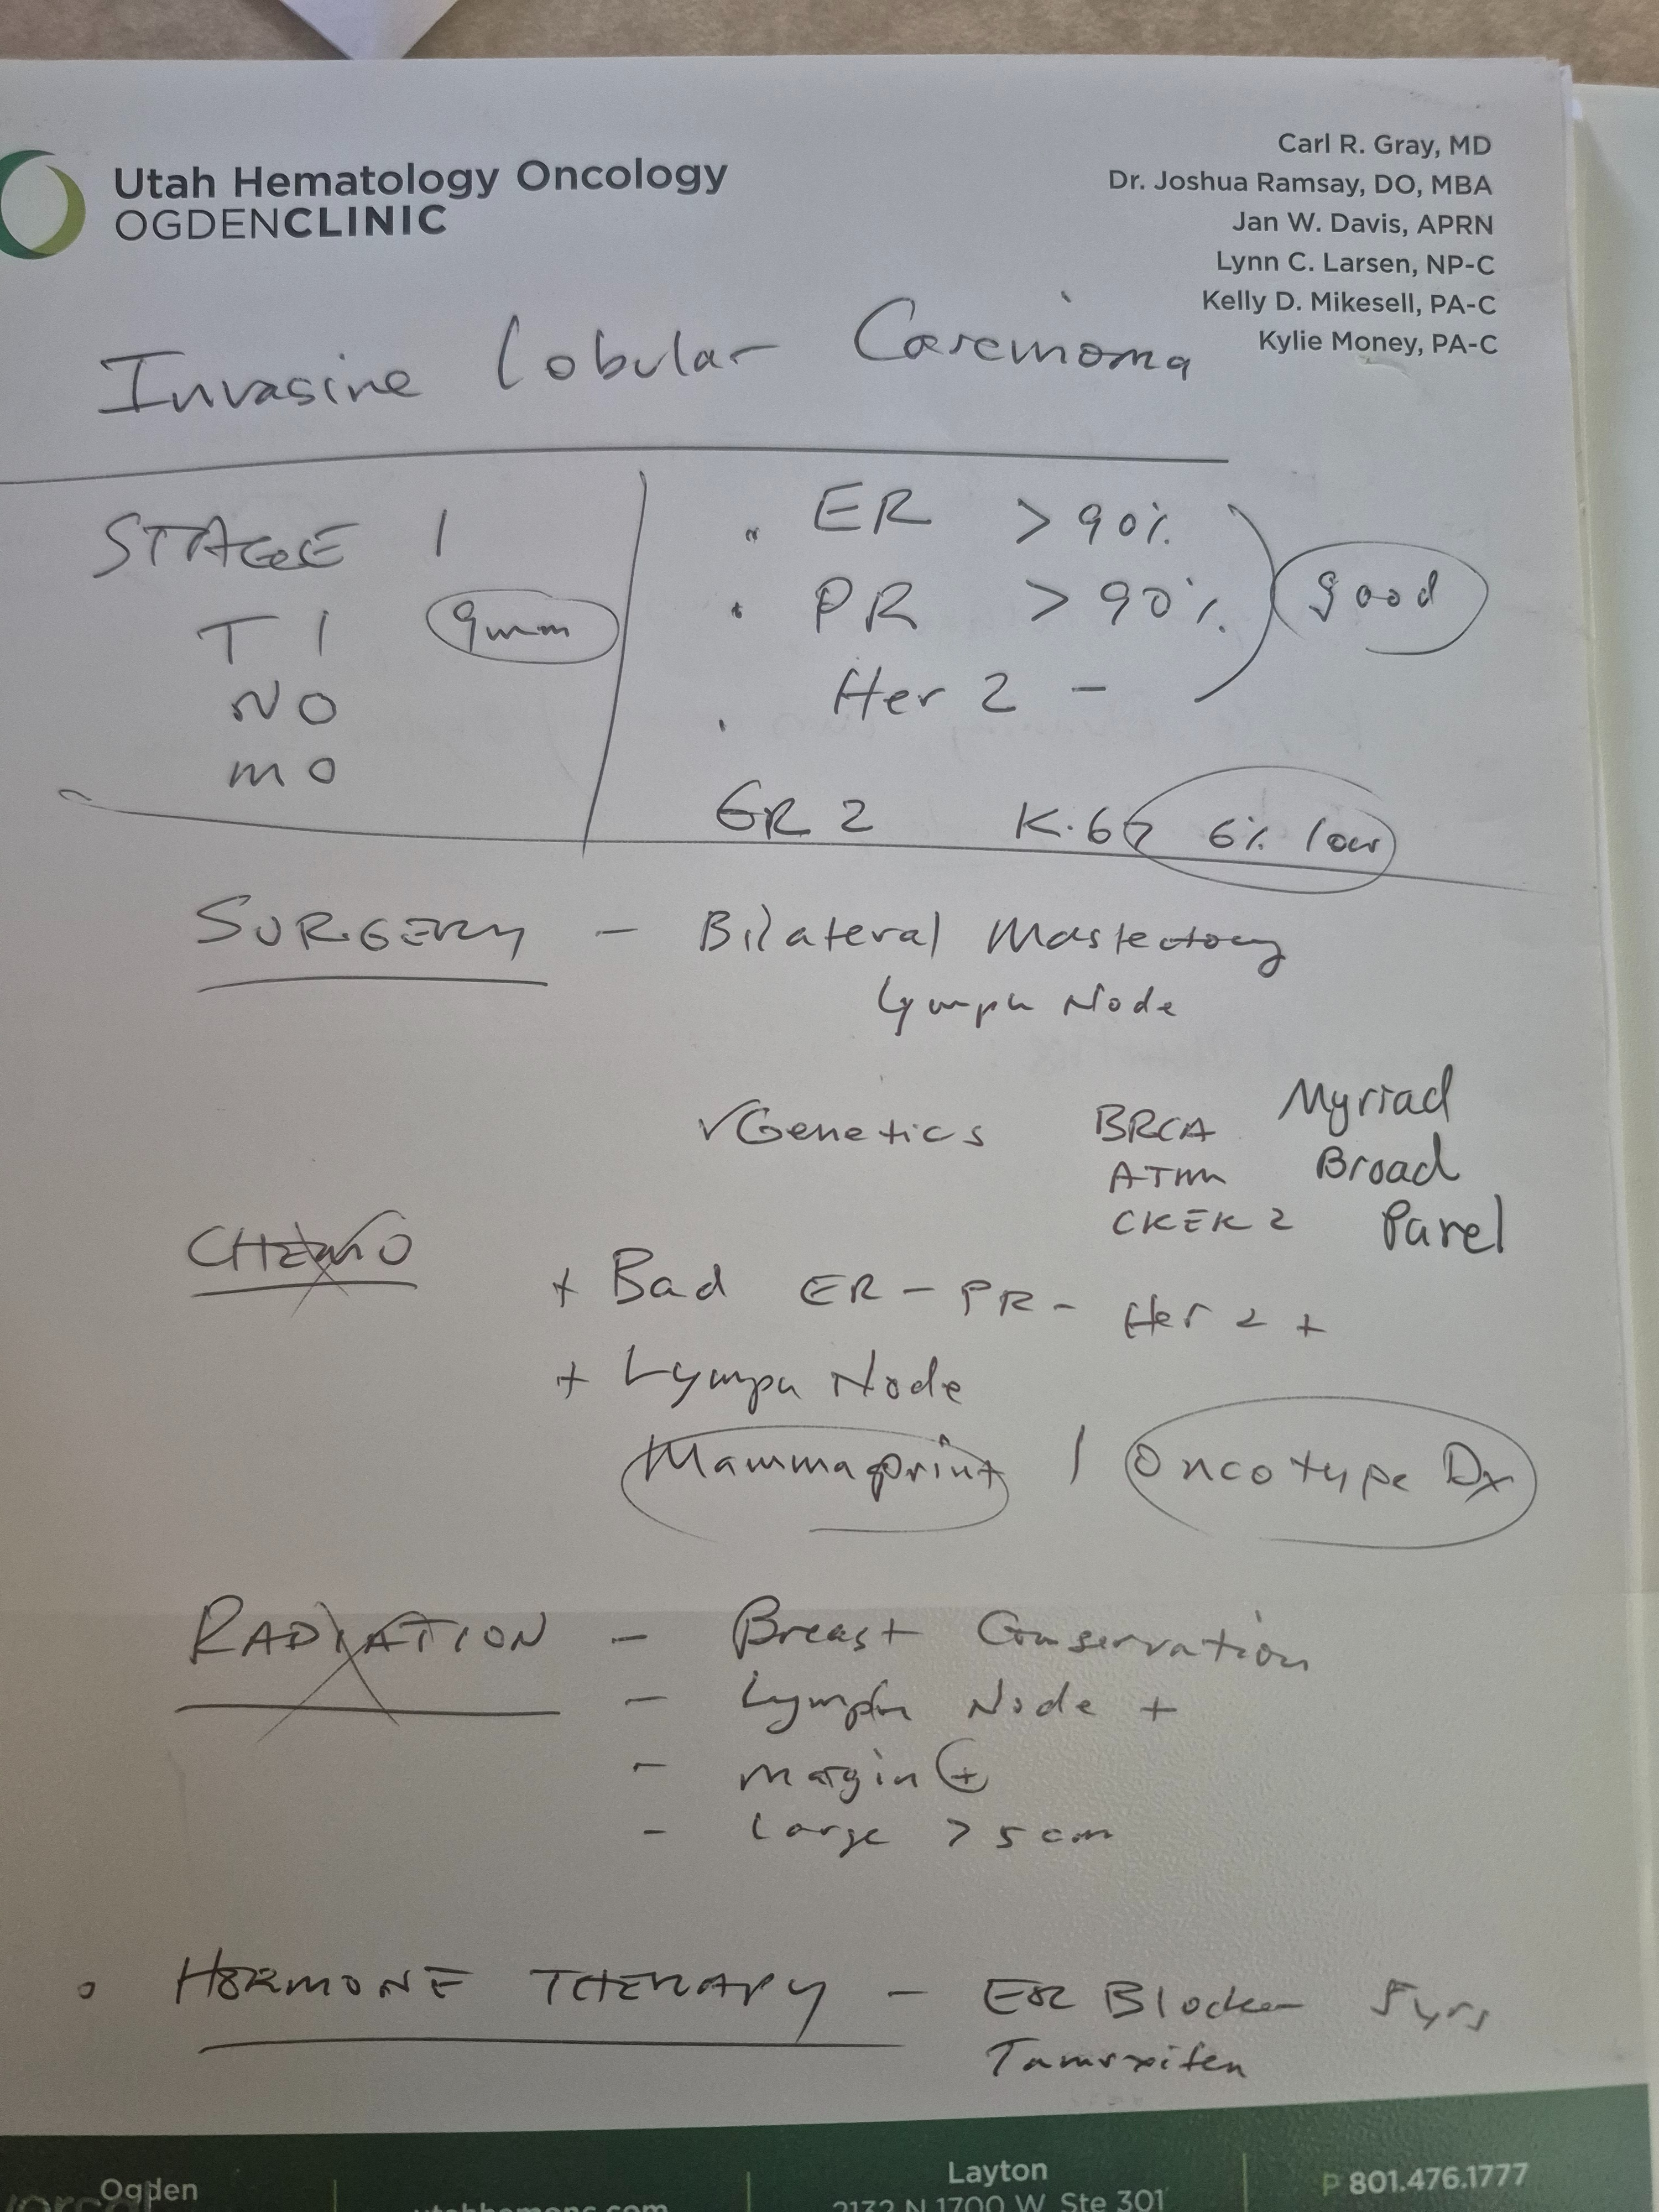 Utah Hematology Oncology
OGDENCLINIC
Carl R. Gray, MD
Dr. Joshua Ramsay, DO, MBA
Jan W. Davis, APRN
Lynn C. Larsen, NP-C
Kelly D. Mikesell, PA-C
Kylie Money, PA-C
Invasive Lobular Carcinoma
STAGE 1
T 1 9mm
N0
M0
ER >90%
PR >90%
Her 2 -
good
GR 2 Ki67 6% low
SURGERY - Bilateral Mastectomy
Lymph Node
✓Genetics BRCA Myriad
ATM Broad
CKEK2 Panel
CHEMO
+ Bad ER- PR- Her 2 +
+ Lymph Node
Mammaprint / Oncotype Dx
RADIATION - Breast Conservation
- Lymph Node +
- margin +
- Large > 5cm
HORMONE THERAPY - ER Blocker 5yrs
Tamoxifen
Ogden
Layton
2132 N 1700 W, Ste 301
P 801.476.1777